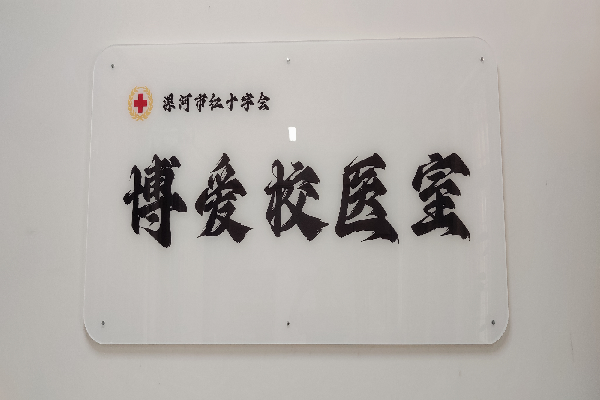 漯河市红十字会
博爱校医室